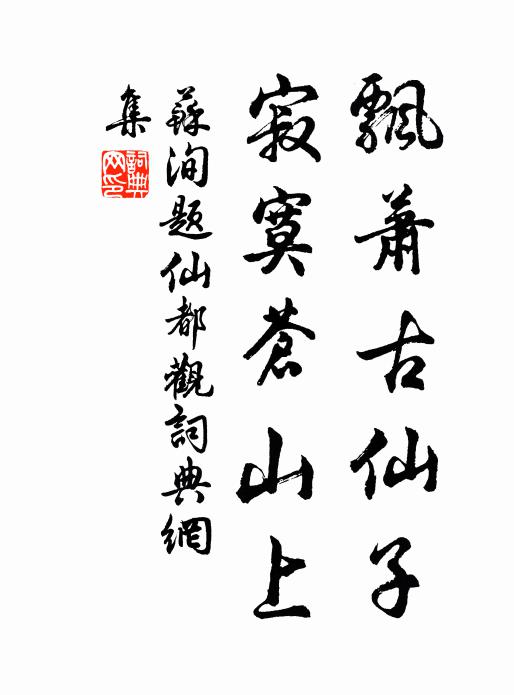 飄蕭古仙子
寂寞蒼山上
蘇洵題仙都觀詞典網
集
詞典網印